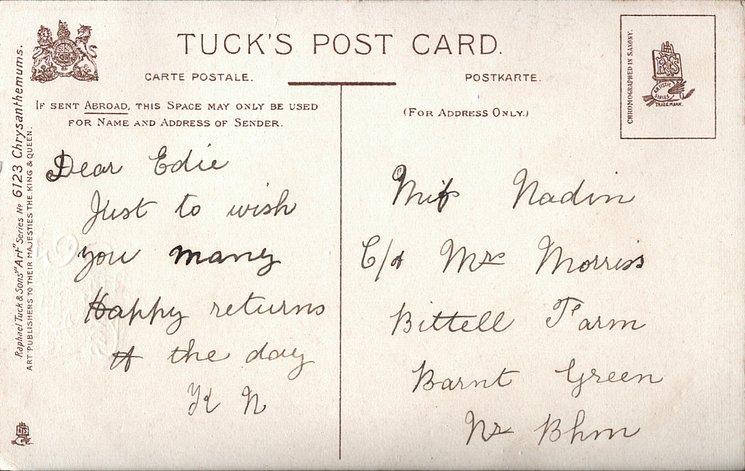 TUCK'S POST CARD.
CARTE POSTALE.
POSTKARTE.
IF SENT ABROAD, THIS SPACE MAY ONLY BE USED
FOR NAME AND ADDRESS OF SENDER.
(FOR ADDRESS ONLY.)
CHROMOGRAPHED IN SAXONY.
ARTISTIC
SERIES
TRADE MARK.
Raphael Tuck & Sons' "Art" Series No 6123 Chrysanthemums.
ART PUBLISHERS TO THEIR MAJESTIES THE KING & QUEEN.
Dear Edie
Just to wish
you many
Happy returns
of the day
Miss Nadin
C/o Mrs Morriss
Bittell Farm
Barnt Green
Nr Bhm